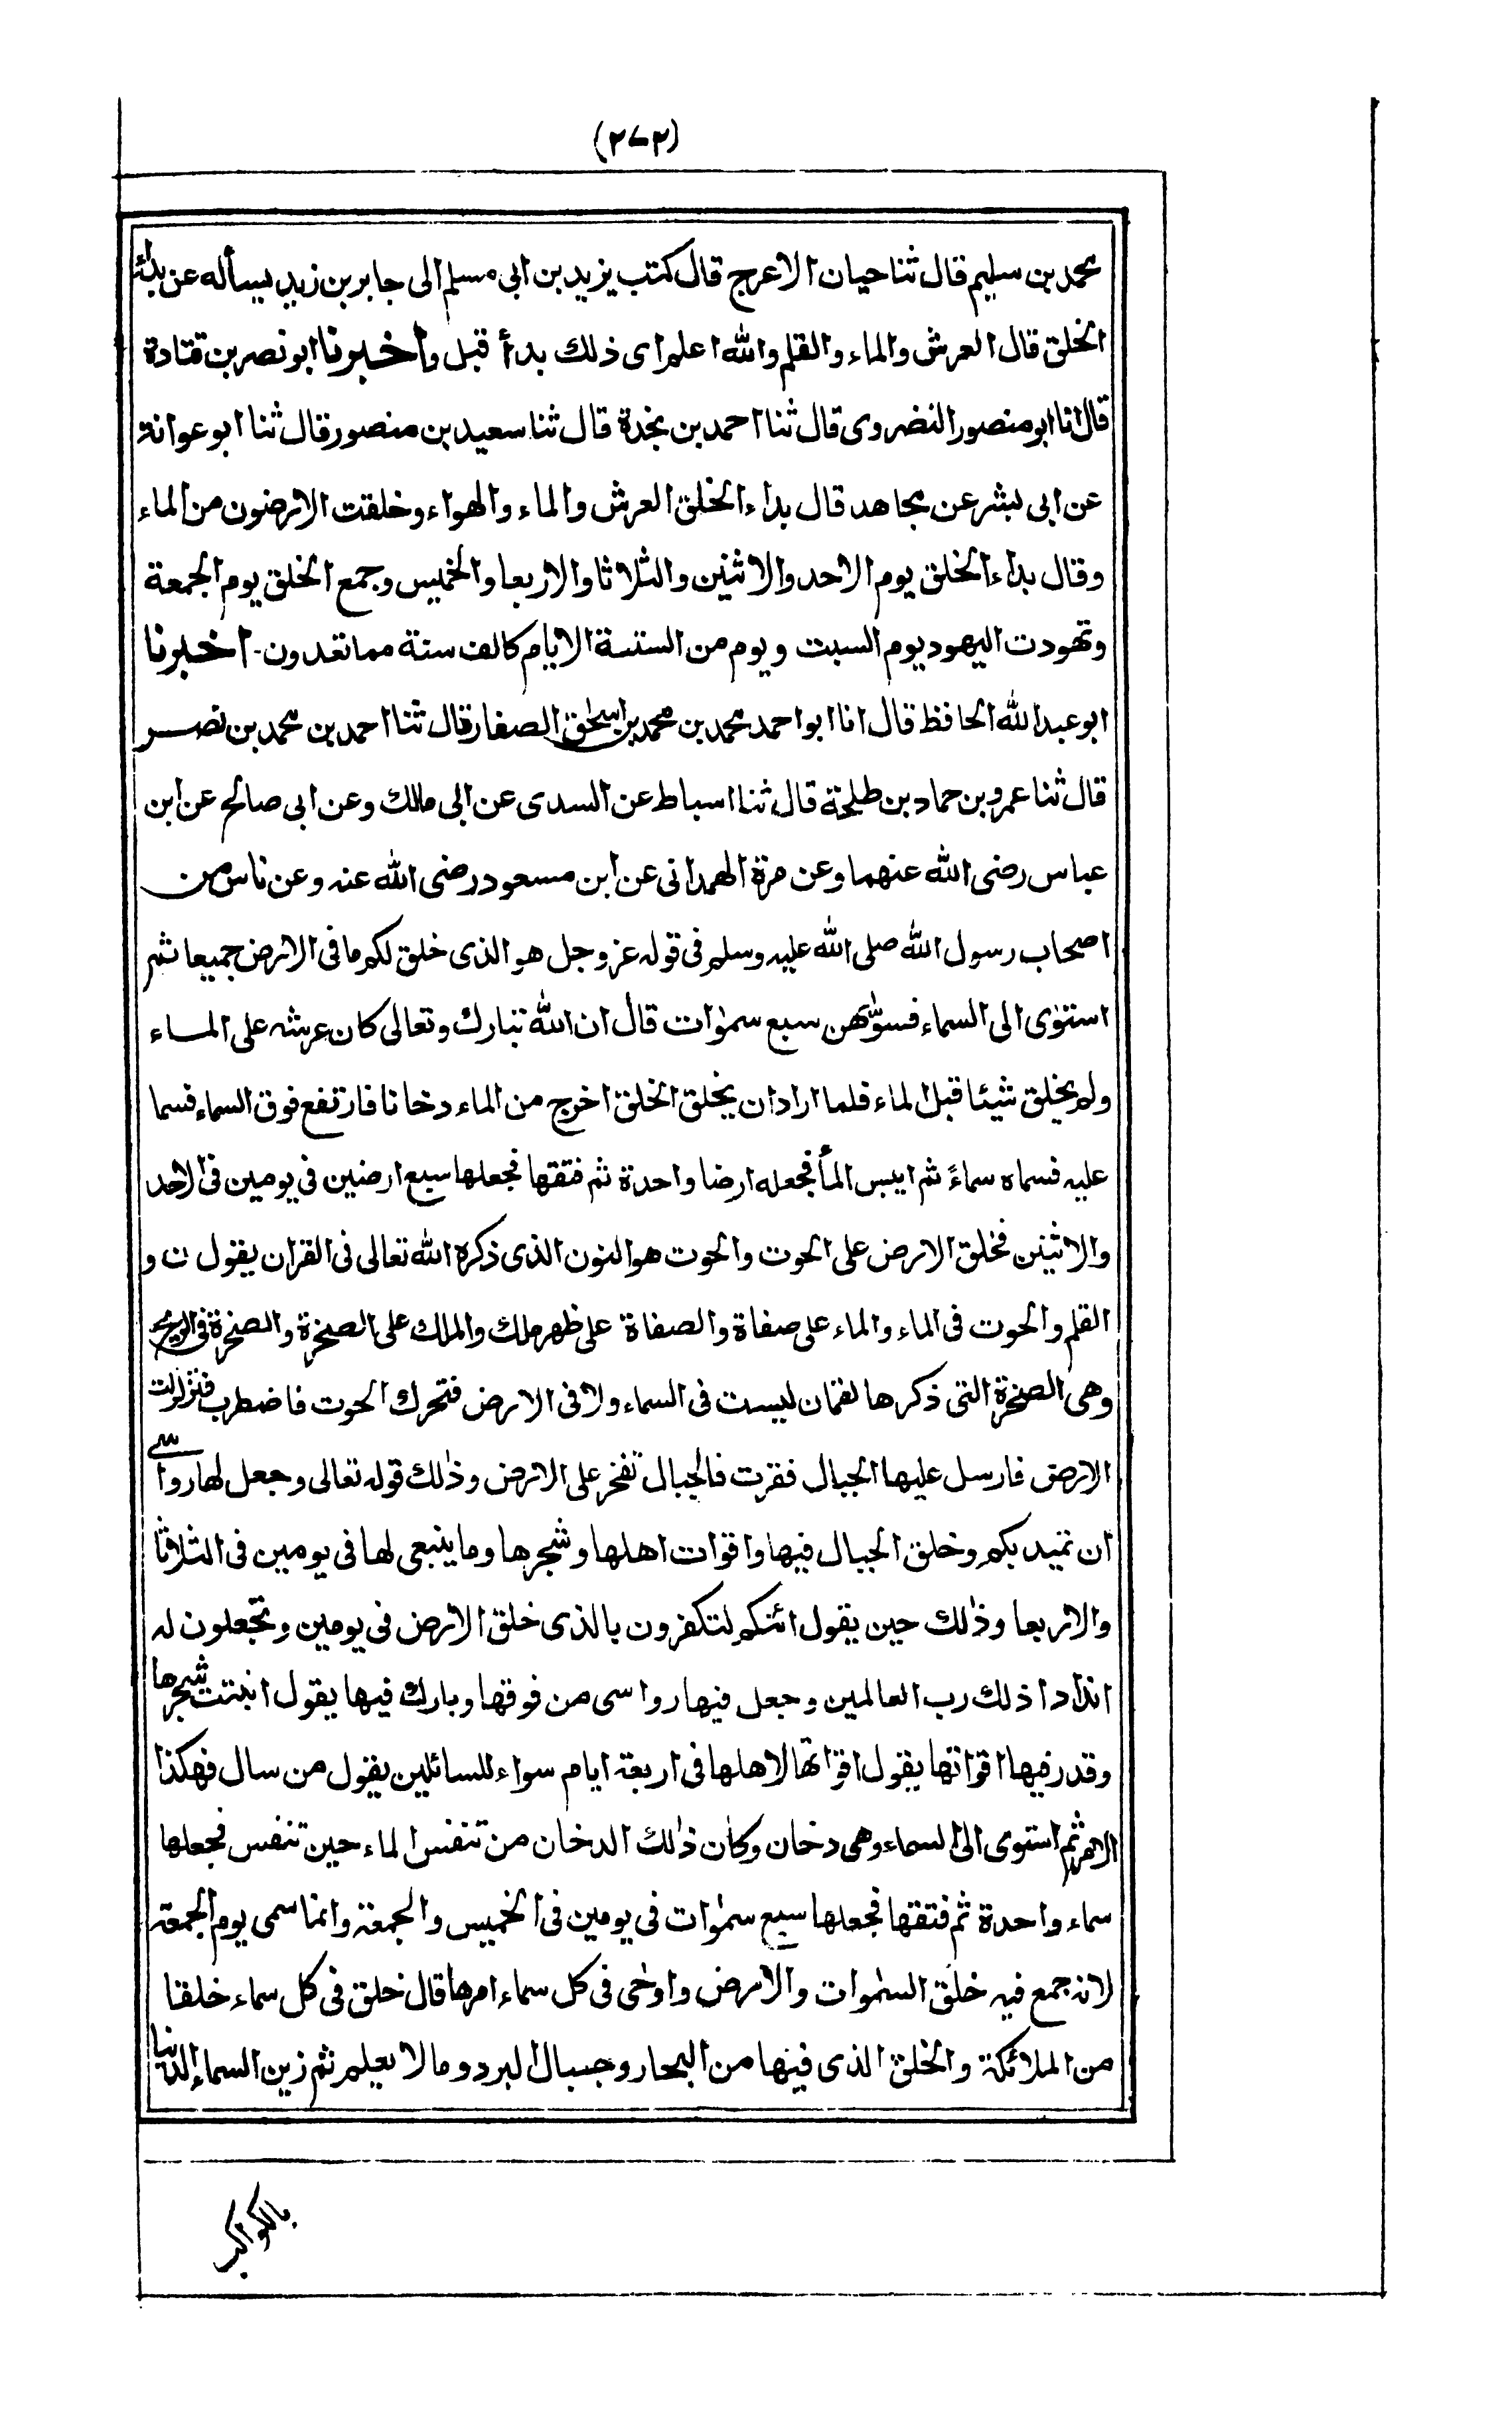 (٢٧٢)
محمد بن سليم قال ثنا حيان الاعرج قال كتب يزيد بن ابى مسلم الى جابر بن زيد يسأله عن بدأ
الخلق قال العرش والماء والقلم والله اعلم اى ذلك بدأ قبل واخبرنا ابو نصر بن قتادة
قال انا ابو منصور النضروى قال ثنا احمد بن نجدة قال ثنا سعيد بن منصور قال ثنا ابو عوانة
عن ابى بشر عن مجاهد قال بداء الخلق العرش والماء والهواء وخلقت الارضون من الماء
وقال بداء الخلق يوم الاحد والاثنين والثلاثا والاربعا والخميس وجمع الخلق يوم الجمعة
وتهودت اليهود يوم السبت ويوم من الستة الايام كالف سنة مما تعدون - اخبرنا
ابو عبد الله الحافظ قال انا ابو احمد محمد بن محمد بن اسحٰق الصفار قال ثنا احمد بن محمد بن نصر
قال ثنا عمرو بن حماد بن طلحة قال ثنا اسباط عن السدى عن ابى مالك وعن ابى صالح عن ابن
عباس رضى الله عنهما وعن مرة الهمدانى عن ابن مسعود رضى الله عنه وعن ناس من
اصحاب رسول الله صلى الله عليه وسلم فى قوله عز وجل هو الذى خلق لكم ما فى الارض جميعا ثم
استوٰى الى السماء فسوّٰهن سبع سمٰوات قال ان الله تبارك وتعالى كان عرشه على الماء
ولم يخلق شيئا قبل الماء فلما اراد ان يخلق الخلق اخرج من الماء دخانا فارتفع فوق السماء فسما
عليه فسماه سماءً ثم ايبس المأ فجعله ارضا واحدة ثم فتقها فجعلها سبع ارضين فى يومين فى الاحد
والاثنين فخلق الارض على الحوت والحوت هو النون الذى ذكره الله تعالى فى القران يقول ن و
القلم والحوت فى الماء والماء على صفاة والصفاة على ظهر ملك والملك على الصخرة والصخرة فى الريح
وهى الصخرة التى ذكرها لقمان ليست فى السماء ولا فى الارض فتحرك الحوت فاضطرب فتزلزلت
الارض فارسل عليها الجبال فقرت فالجبال تفخر على الارض وذٰلك قوله تعالى وجعل لها رواسى
ان تميد بكم وخلق الجبال فيها واقوات اهلها وشجرها وما ينبغى لها فى يومين فى الثلاثا
والاربعا وذٰلك حين يقول ائنكم لتكفرون بالذى خلق الارض فى يومين وتجعلون له
اندادا ذلك رب العالمين وجعل فيها رواسى من فوقها وبارك فيها يقول انبتت شجرها
وقدر فيها اقواتها يقول اقواتها لاهلها فى اربعة ايام سواء للسائلين يقول من سال فهكذا
الامر ثم استوى الى السماء وهى دخان وكان ذٰلك الدخان من تنفس الماء حين تنفس فجعلها
سماء واحدة ثم فتقها فجعلها سبع سمٰوات فى يومين فى الخميس والجمعة وانما سمى يوم الجمعة
لانه جمع فيه خلق السمٰوات والارض واوحٰى فى كل سماء امرها قال خلق فى كل سماء خلقا
من الملائكة والخلق الذى فيها من البحار وجبال البرد وما لا يعلم ثم زين السماء الدنيا
بالكواكب